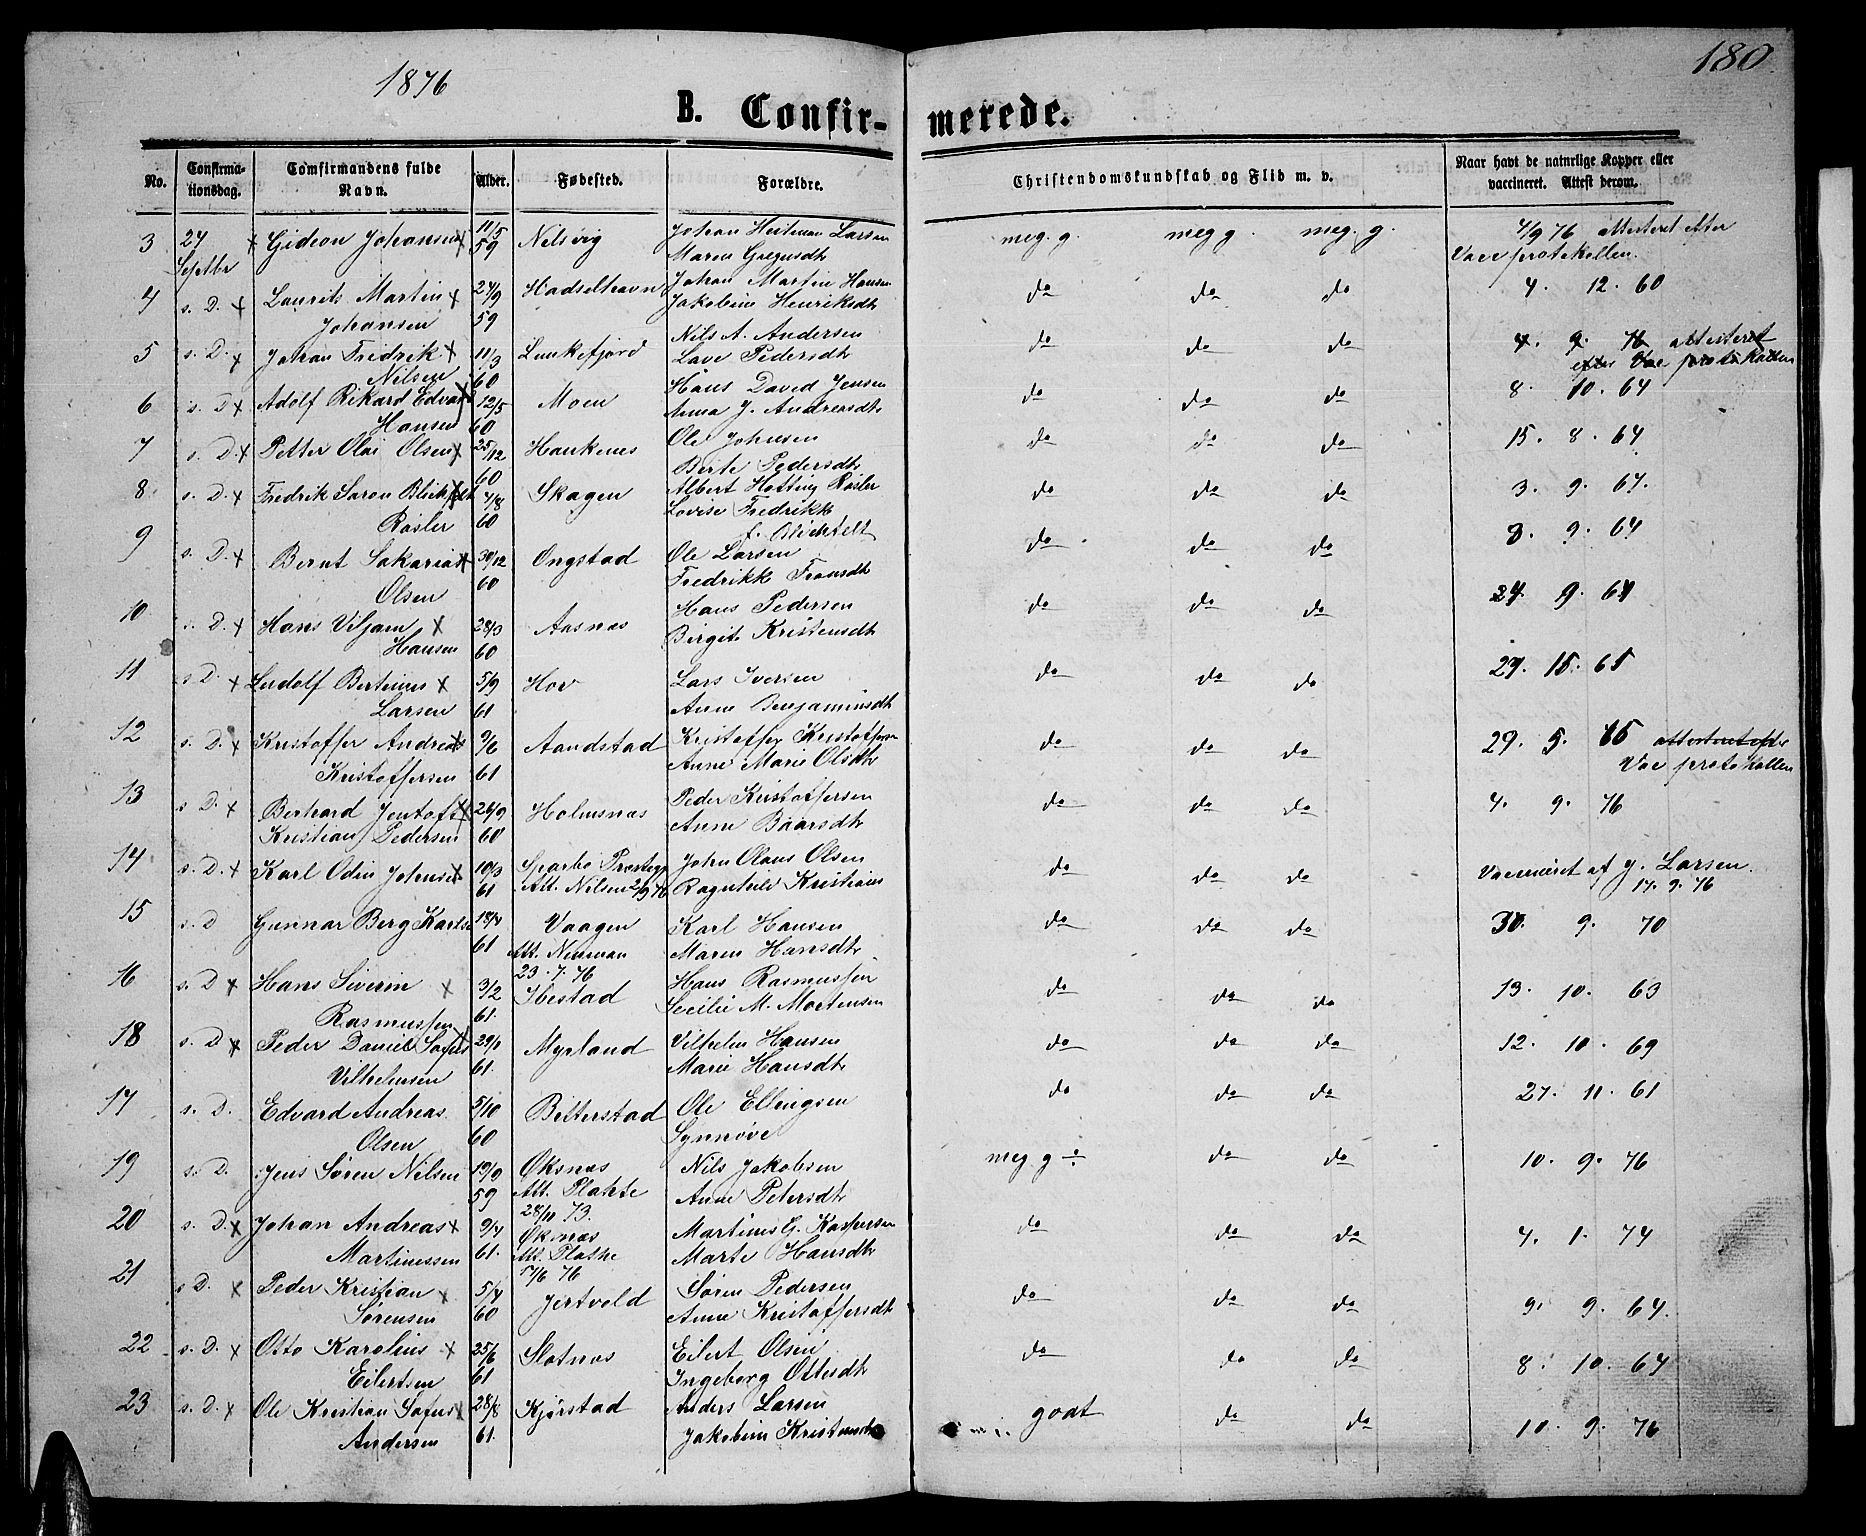 1876
180
B. Confir-
merede.
No.
Confirma-
tionsdag.
Comfirmandens fulde
Navn.
Alder.
Fødested.
Forældre.
Christendomskundskab og Flid m. v.
Naar havt de naturlige Kopper eller
vaccineret. Attest derom.
3 24 Septbr x Gideon Johansen x 11/5 59 Nelsvig Johan Heitman Larsen
Maren Gregusdtr meg. g. meg g. meg. g. 4/9 76 attesteret etter
Vac protokollen.
4 s. D. x Laurits Martin x 24/9 Hadselhavn Johan Martin Hansen do do do 4. 12. 60
Johansen 59 Jakobine Henriksdtr
5 s. D. x Johan Fredrik x 11/3 Lunkefjord Nils A. Andersen do do do 4. 9. 76 attesteret
Nilsen 60 Lave Pedersdtr efter Vac protokollen
6 s. D. x Adolf Rikard Edvard 12/5 Moen Hans David Jensen do do do 8. 10. 64
Hansen 60 Anna J. Andreasdtr
7 s. D. x Petter Olai Olsen x 25/12 Haukenes Ole Johnsen do do do 15. 8. 64
60 Berte Pedersdtr
8. s. D. x Fredrik Saron Blickfelt 4/8 Skagen Albert Hotting Røsler do do do 3. 9. 64.
Røsler 60 Lovise Fredrikk
f. Blickfelt
9 s. D. x Bernt Sakarias x 30/12 Ongstad Ole Larsen do do do 8. 9. 64
Olsen 60 Fredrikk Fransdtr
10 s. D. x Hans Viljam x 28/3 Aasnæs Hans Pedersen do do do 24. 9. 64
Hansen 60 Birgit Kristensdtr
11 s D. x Ludolf Bertinus x 5/9 Hov Lars Iversen do do do 29. 15. 65
Larsen 61 Anne Benjaminsdtr
12 s. D. x Kristoffer Andreas 9/6 Aandstad Kristoffer Kristoffersen do do do 29. 5. 65 attesteret efter
Kristoffersen 61 Anne Marie Olsdtr Vac protokollen
13 s D. x Berhard Jentoft x 26/9 Holmsnæs Peder Kristoffersen do do do 4. 9. 76
Kristian Pedersen 60 Anne Baarsdtr
14 s. D. x Karl Odin Johnsen 10/3 Sparbo Præstegj John Olaus Olsen do do do Vaccineret af J. Larsen.
61 Att. Nilsen 2/9 76 Ragnhild Kristians 17. 9. 76
15 s. D Gunnar Berg Karlsen 18/4 Vaagen Karl Hansen do do do 30. 9. 70
61 Att. Neuman Maren Hansdtr
23. 7. 76
16 s. D x Hans Siverin x 3/2 Ibestad Hans Rasmussen do do do 13. 10. 63
Rasmussen 61. Secilie M. Mortensen
18 s. D x Peder Daniel Sofus x 29/1 Myrland Vilhelm Hansen do do do 12. 10. 69
Vilhelmsen 61. Marie Hansdtr
17 s. D. Edvard Andreas 5/10 Bitterstad Ole Ellingsen do do do 27. 11. 61
Olsen 60 Synnøve
19 s. D. Jens Søren Nilsen 19/9 Øksnæs Nils Jakobsen meg g ÷ do do 10. 9. 76
59 Att. Plahte Anne Petersdtr
28/11 73.
20 s. D. x Johan Andreas x 9/4 Øksnæs Martinus G. Kaspersen do do do 4. 1. 74
Martinussen 61. Att. Plathe Marte Hansdtr
17/6 76
21 s D. x Peder Kristian x 5/4 Jertvold Søren Pedersen do do do 9. 9. 64.
Sørensen 60 Anne Kristoffersdtr
22 s. D. x Otto Karolius x 25/6 Slotnæs Eilert Olsen do do do 8. 10. 64
Eilertsen 61 Ingeborg Ottesdtr
23 s. D. x Ole Kristian Sofus x 28/8 Kjørstad Anders Larsen godt do do 10. 9. 76
Andersen 61. Jakobine Kristensdtr